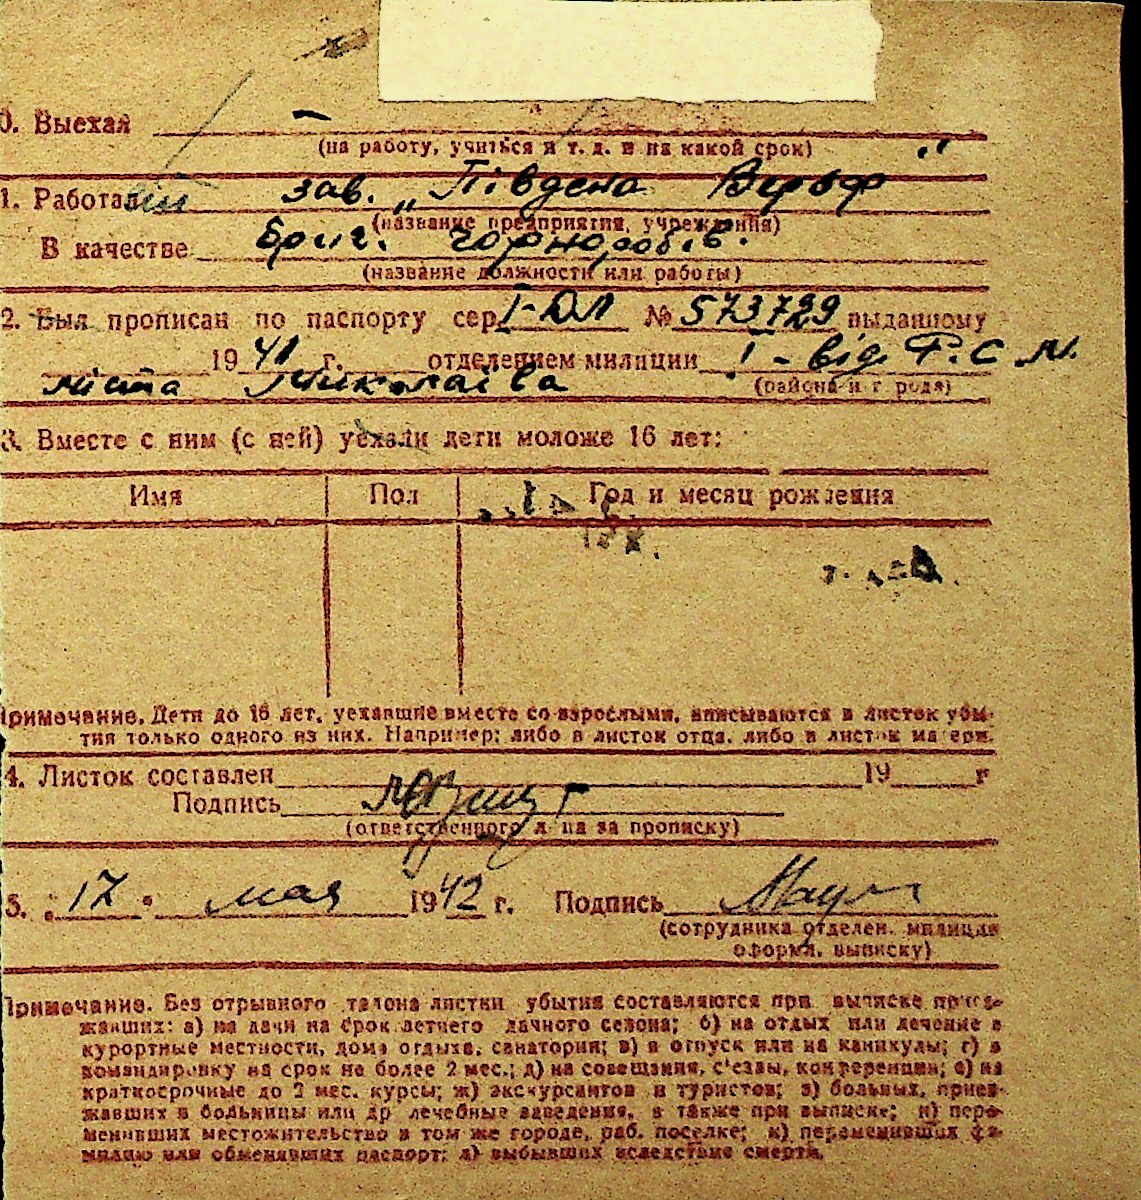 0. Выехал –
(на работу, учиться и т. д. и на какой срок)
1. Работал зав. „Південа Верфь"
(название предприятия, учреждения)
В качестве бриг. чорнороб.
(название должности или работы)
2. Был прописан по паспорту сер. I-ДЛ № 573729 выданному
1941 г. отделением милиции 1 - від. Р.С.М.
міста Миколаїва (района и г. рода)
3. Вместе с ним (с ней) уехали дети моложе 16 лет:
Имя Пол Год и месяц рождения
Примечание. Дети до 16 лет, уехавшие вместе со взрослыми, вписываются в листок убы-
тия только одного из них. Например: либо в листок отца, либо в листок матери.
4. Листок составлен 19 г
Подпись
(ответственного лица за прописку)
5. „17" мая 1942 г. Подпись
(сотрудника отделен. милиции
оформл. выписку)
Примечание. Без отрывного талона листки убытия составляются при выписке приез-
жавших: а) на дачи на срок летнего дачного сезона; б) на отдых или лечение в
курортные местности, дома отдыха, санатории; в) в отпуск или на каникулы; г) в
командировку на срок не более 2 мес.; д) на совещания, съезды, конференции; е) на
краткосрочные до 2 мес. курсы; ж) экскурсантов и туристов; з) больных, приез-
жавших в больницы или др лечебные заведения, а также при выписке; и) пере-
менивших местожительство в том же городе, раб. поселке; к) переменивших фа-
милию или обменявших паспорт; л) выбывших вследствие смерти.